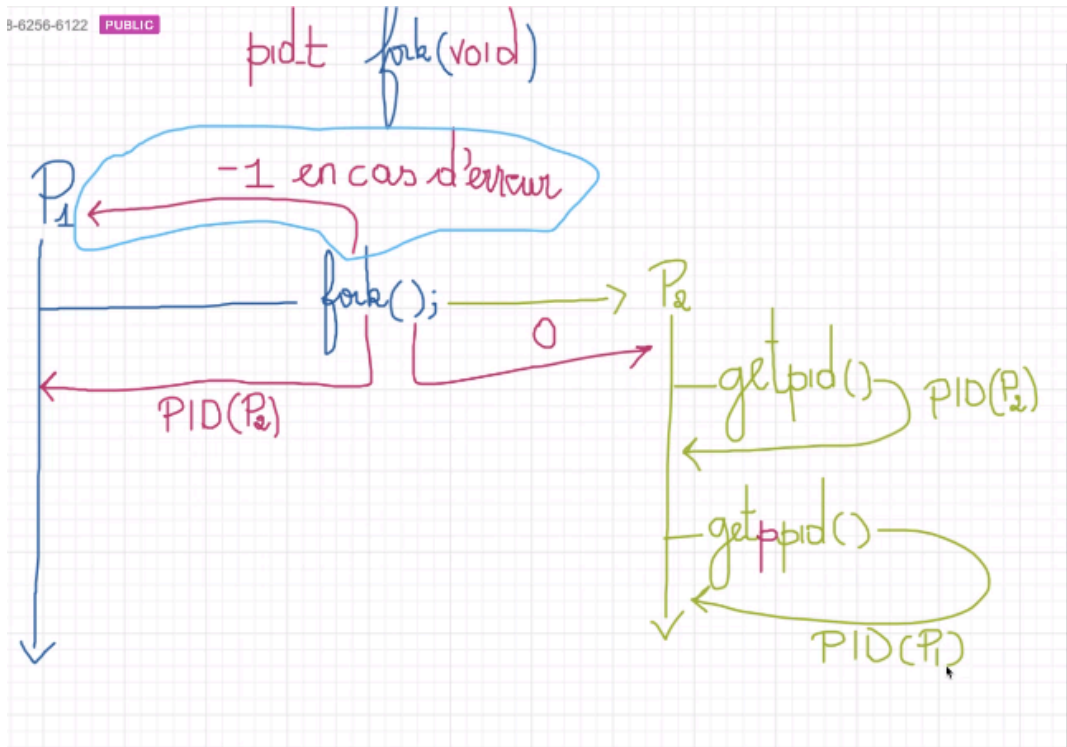 8-6256-6122 PUBLIC
pid_t fork(void)
-1 en cas d'erreur
P1
fork();
P2
0
getpid()
PID(P2)
PID(P2)
getppid()
PID(P1)